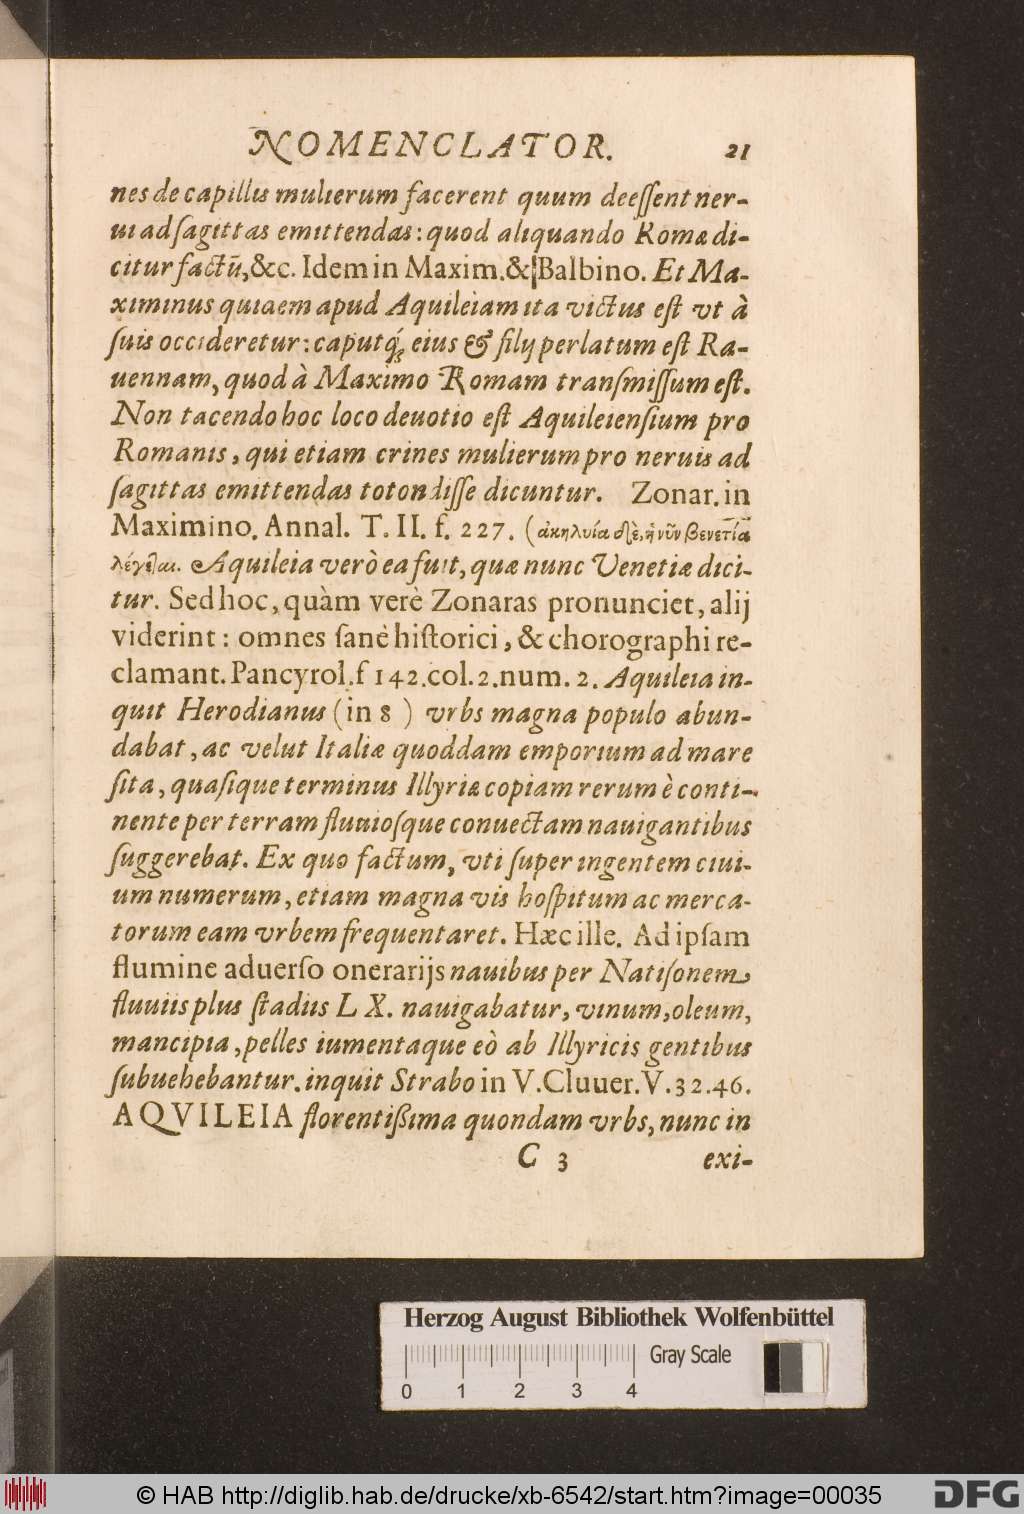 NOMENCLATOR. 21
nes de capillis mulierum facerent quum deeſſent ner-
ui ad ſagittas emittendas: quod aliquando Romæ di-
citur factũ, &c. Idem in Maxim. & Balbino. Et Ma-
ximinus quidem apud Aquileiam ita victus eſt vt à
ſuis occideretur: caputq́; eius & filij perlatum eſt Ra-
uennam, quod à Maximo Romam tranſmiſſum eſt.
Non tacendo hoc loco deuotio eſt Aquileienſium pro
Romanis, qui etiam crines mulierum pro neruis ad
ſagittas emittendas totondiſſe dicuntur. Zonar. in
Maximino. Annal. T. II. f. 227. (ἀκηλυία δὲ, ἡ νῦν βενετία
λέγεται. Aquileia verò ea fuit, quæ nunc Venetiæ dici-
tur. Sed hoc, quàm verè Zonaras pronunciet, alij
viderint: omnes ſanè hiſtorici, & chorographi re-
clamant. Pancyrol. f 142. col. 2. num. 2. Aquileia in-
quit Herodianus (in 8 ) vrbs magna populo abun-
dabat, ac velut Italiæ quoddam emporium ad mare
ſita, quaſique terminus Illyriæ copiam rerum è conti-
nente per terram fluuioſque conuectam nauigantibus
ſuggerebat. Ex quo factum, vti ſuper ingentem ciui-
um numerum, etiam magna vis hoſpitum ac merca-
torum eam vrbem frequentaret. Hæc ille. Ad ipſam
flumine aduerſo onerarijs nauibus per Natiſonem
fluuiis plus ſtadiis L X. nauigabatur, vinum, oleum,
mancipia, pelles iumentaque eò ab Illyricis gentibus
ſubuehebantur. inquit Strabo in V. Cluuer. V. 32. 46.
AQVILEIA florentißima quondam vrbs, nunc in
C 3 exi-
Herzog August Bibliothek Wolfenbüttel
Gray Scale
0 1 2 3 4
© HAB http://diglib.hab.de/drucke/xb-6542/start.htm?image=00035
DFG